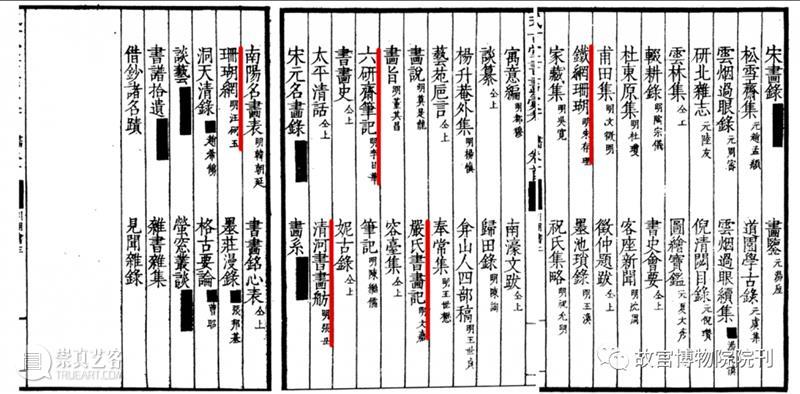 宋畫錄 畫鑒 元湯垕
松雪齋集 元趙孟頫 道園學古錄 元虞集
雲烟過眼錄 元周密 雲烟過眼續集
研北雜志 元陸友 倪清閟目錄 元倪瓚
雲林集 仝上 圖繪寶鑑 元夏文彥
輟耕錄 明陶宗儀 書史會要 仝上
杜東原集 明杜瓊 客座新聞 明沈周
甫田集 明文徵明 徵仲題跋 仝上
鐵網珊瑚 明朱存理 墨池瑣錄
家藏集 明吳寬 祝氏集略 明祝允明
寓意編 明都穆 南濠文跋 仝上
談纂 仝上 歸田錄
楊升菴外集 明楊慎 弇山人四部稿 明王世貞
藝苑巵言 仝上 奉常集 明王世懋
畫說 明莫是龍 嚴氏書畫記 明文嘉
畫旨 明董其昌 容臺集 仝上
六研齋筆記 明李日華 筆記 明陳繼儒
書畫史 仝上 妮古錄 仝上
太平清話 仝上 清河書畫舫 明張丑
宋元名畫錄 畫系
南陽名畫表 明韓朝延 書畫銘心表 仝上
珊瑚網 明汪砢玉 墨莊漫錄 張邦基
洞天清錄 趙希鵠 格古要論 曹昭
談藝 螢窓叢談
書譜拾遺 雜書雜集
借鈔諸名蹟 見聞雜錄
崇真艺客
TRUEART.COM
故宫博物院院刊